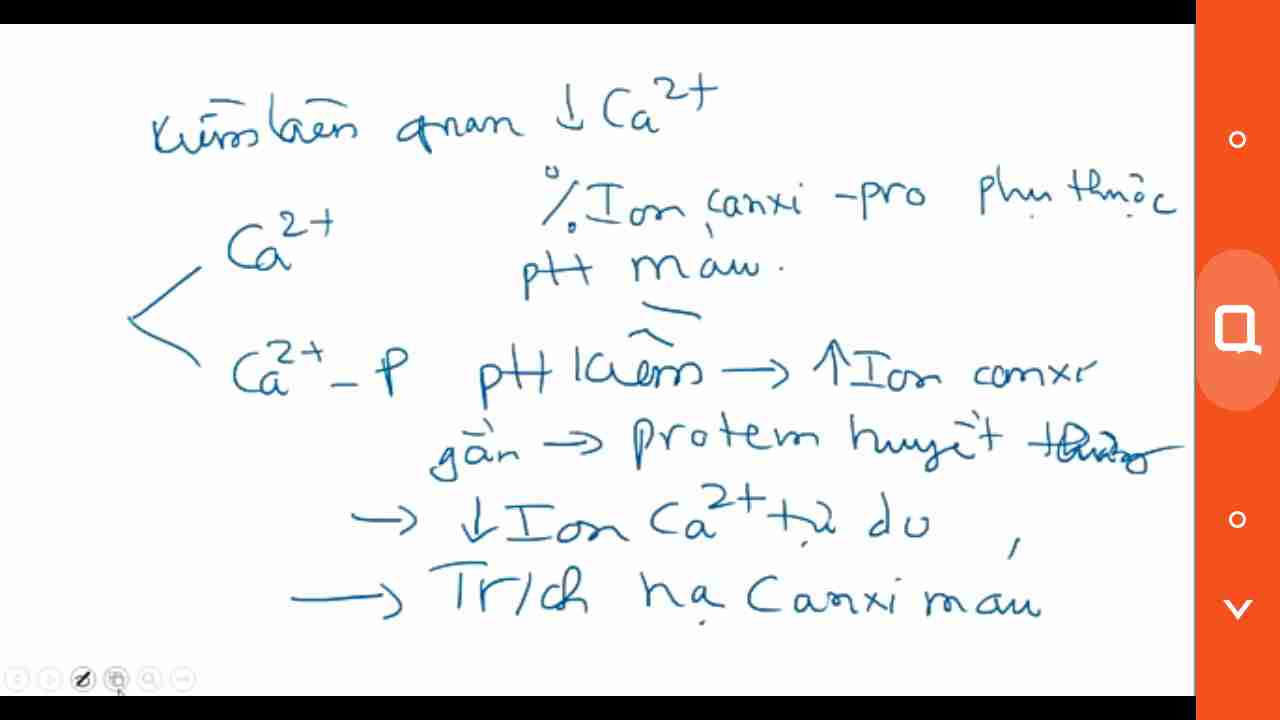 kiềm liên quan ↓ Ca²⁺
% Ion canxi - pro phụ thuộc
pH máu.
Ca²⁺
Ca²⁺ - P
pH kiềm → ↑ Ion canxi
gắn → protein huyết thương
→ ↓ Ion Ca²⁺ tự do
→ Tr/ch hạ Canxi máu